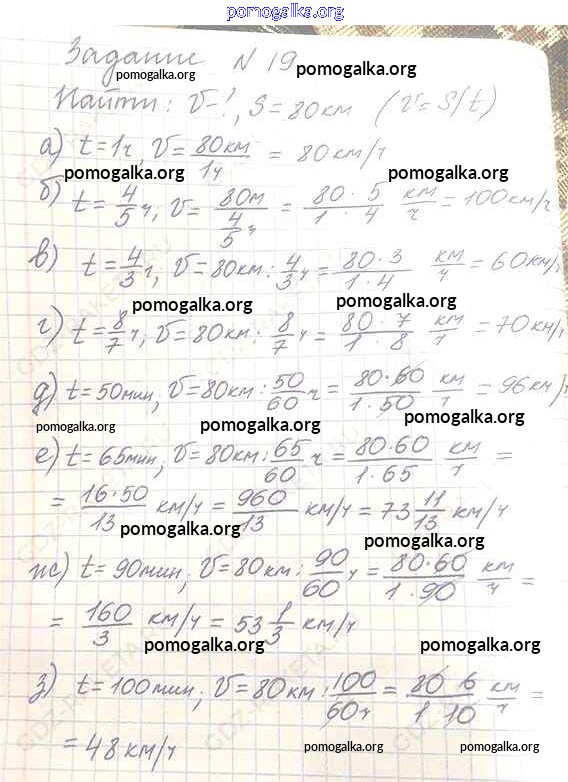 pomogalka.org
Задание N 19
pomogalka.org pomogalka.org
Найти: V-!, S=80км (V=S/t)
pomogalka.org
а) t=1ч, V=80км/1ч = 80км/ч
pomogalka.org pomogalka.org
б) t=4/5ч, V=80м/4/5ч = 80·5/1·4 км/ч = 100км/ч
в) t=4/3ч, V=80км:4/3ч = 80·3/1·4 км/ч = 60км/ч
pomogalka.org pomogalka.org
г) t=8/7ч, V=80км:8/7ч = 80·7/1·8 км/ч = 70км/ч
д) t=50мин, V=80км:50/60ч = 80·60/1·50 км/ч = 96км/ч
pomogalka.org pomogalka.org pomogalka.org
е) t=65мин, V=80км:65/60ч = 80·60/1·65 км/ч =
= 16·50/13 км/ч = 960/13 км/ч = 73 11/13 км/ч
pomogalka.org pomogalka.org
ж) t=90мин; V=80км:90/60ч = 80·60/1·90 км/ч =
= 160/3 км/ч = 53 1/3 км/ч
pomogalka.org pomogalka.org
з) t=100мин; V=80км:100/60ч = 80 6/1 10 км/ч =
= 48км/ч
pomogalka.org pomogalka.org